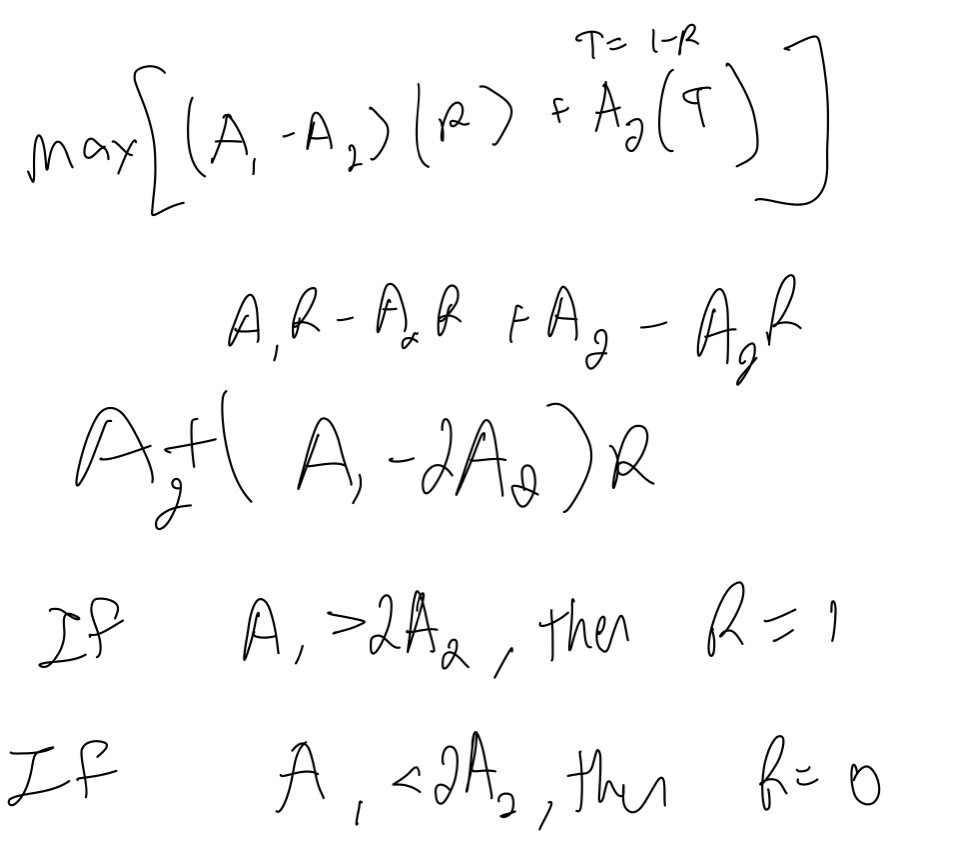 T = 1-R
max[(A₁ - A₂)(R) + A₂(T)]
A₁R - A₂R + A₂ - A₂R
A₂ + (A₁ - 2A₂)R
If A₁ > 2A₂, then R = 1
If A₁ < 2A₂, then R = 0